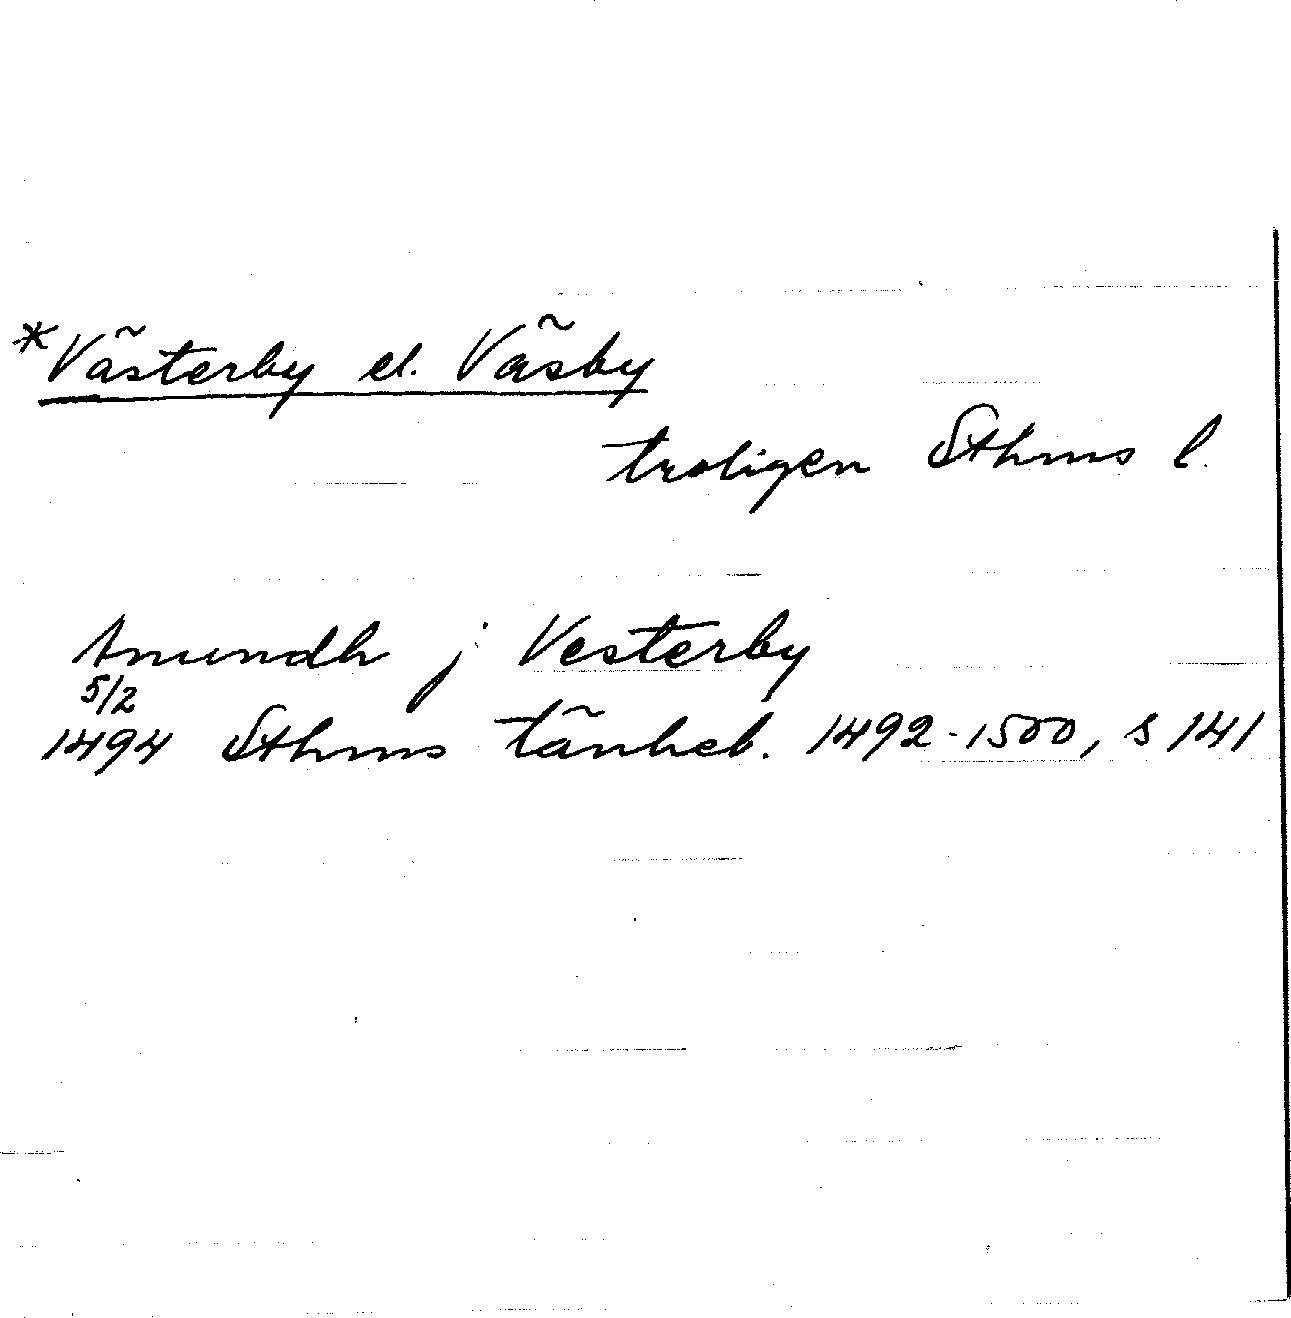 *Västerby el. Väsby
troligen Sthms l.
Amundh j Vesterby
5/2
1494 Sthms tänkeb. 1492-1500, s 141